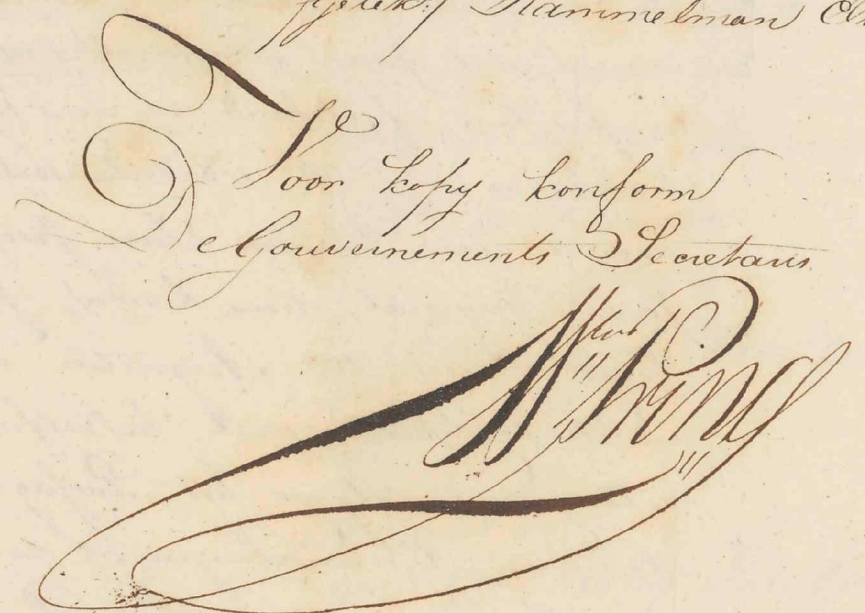 (get:) Kammelman
Voor kopy konform
De Gouvernements Secretaris
Wm Prince